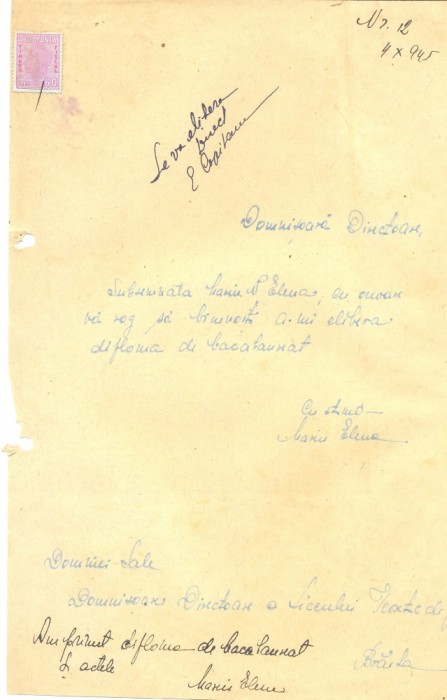 Nr. 12
4 X 945
Se va elibera
E Capitanu
Domnișoară Directoare,
Subsemnata Marin N Elena, cu onoare
vă rog să binevoiți a-mi elibera
diploma de bacalaureat
Cu stimă
Marin Elena
Domniei Sale
Domnișoarei Directoare a Liceului Teoretic de
Am primit diploma de bacalaureat
și actele
Brăila
Marin Elena